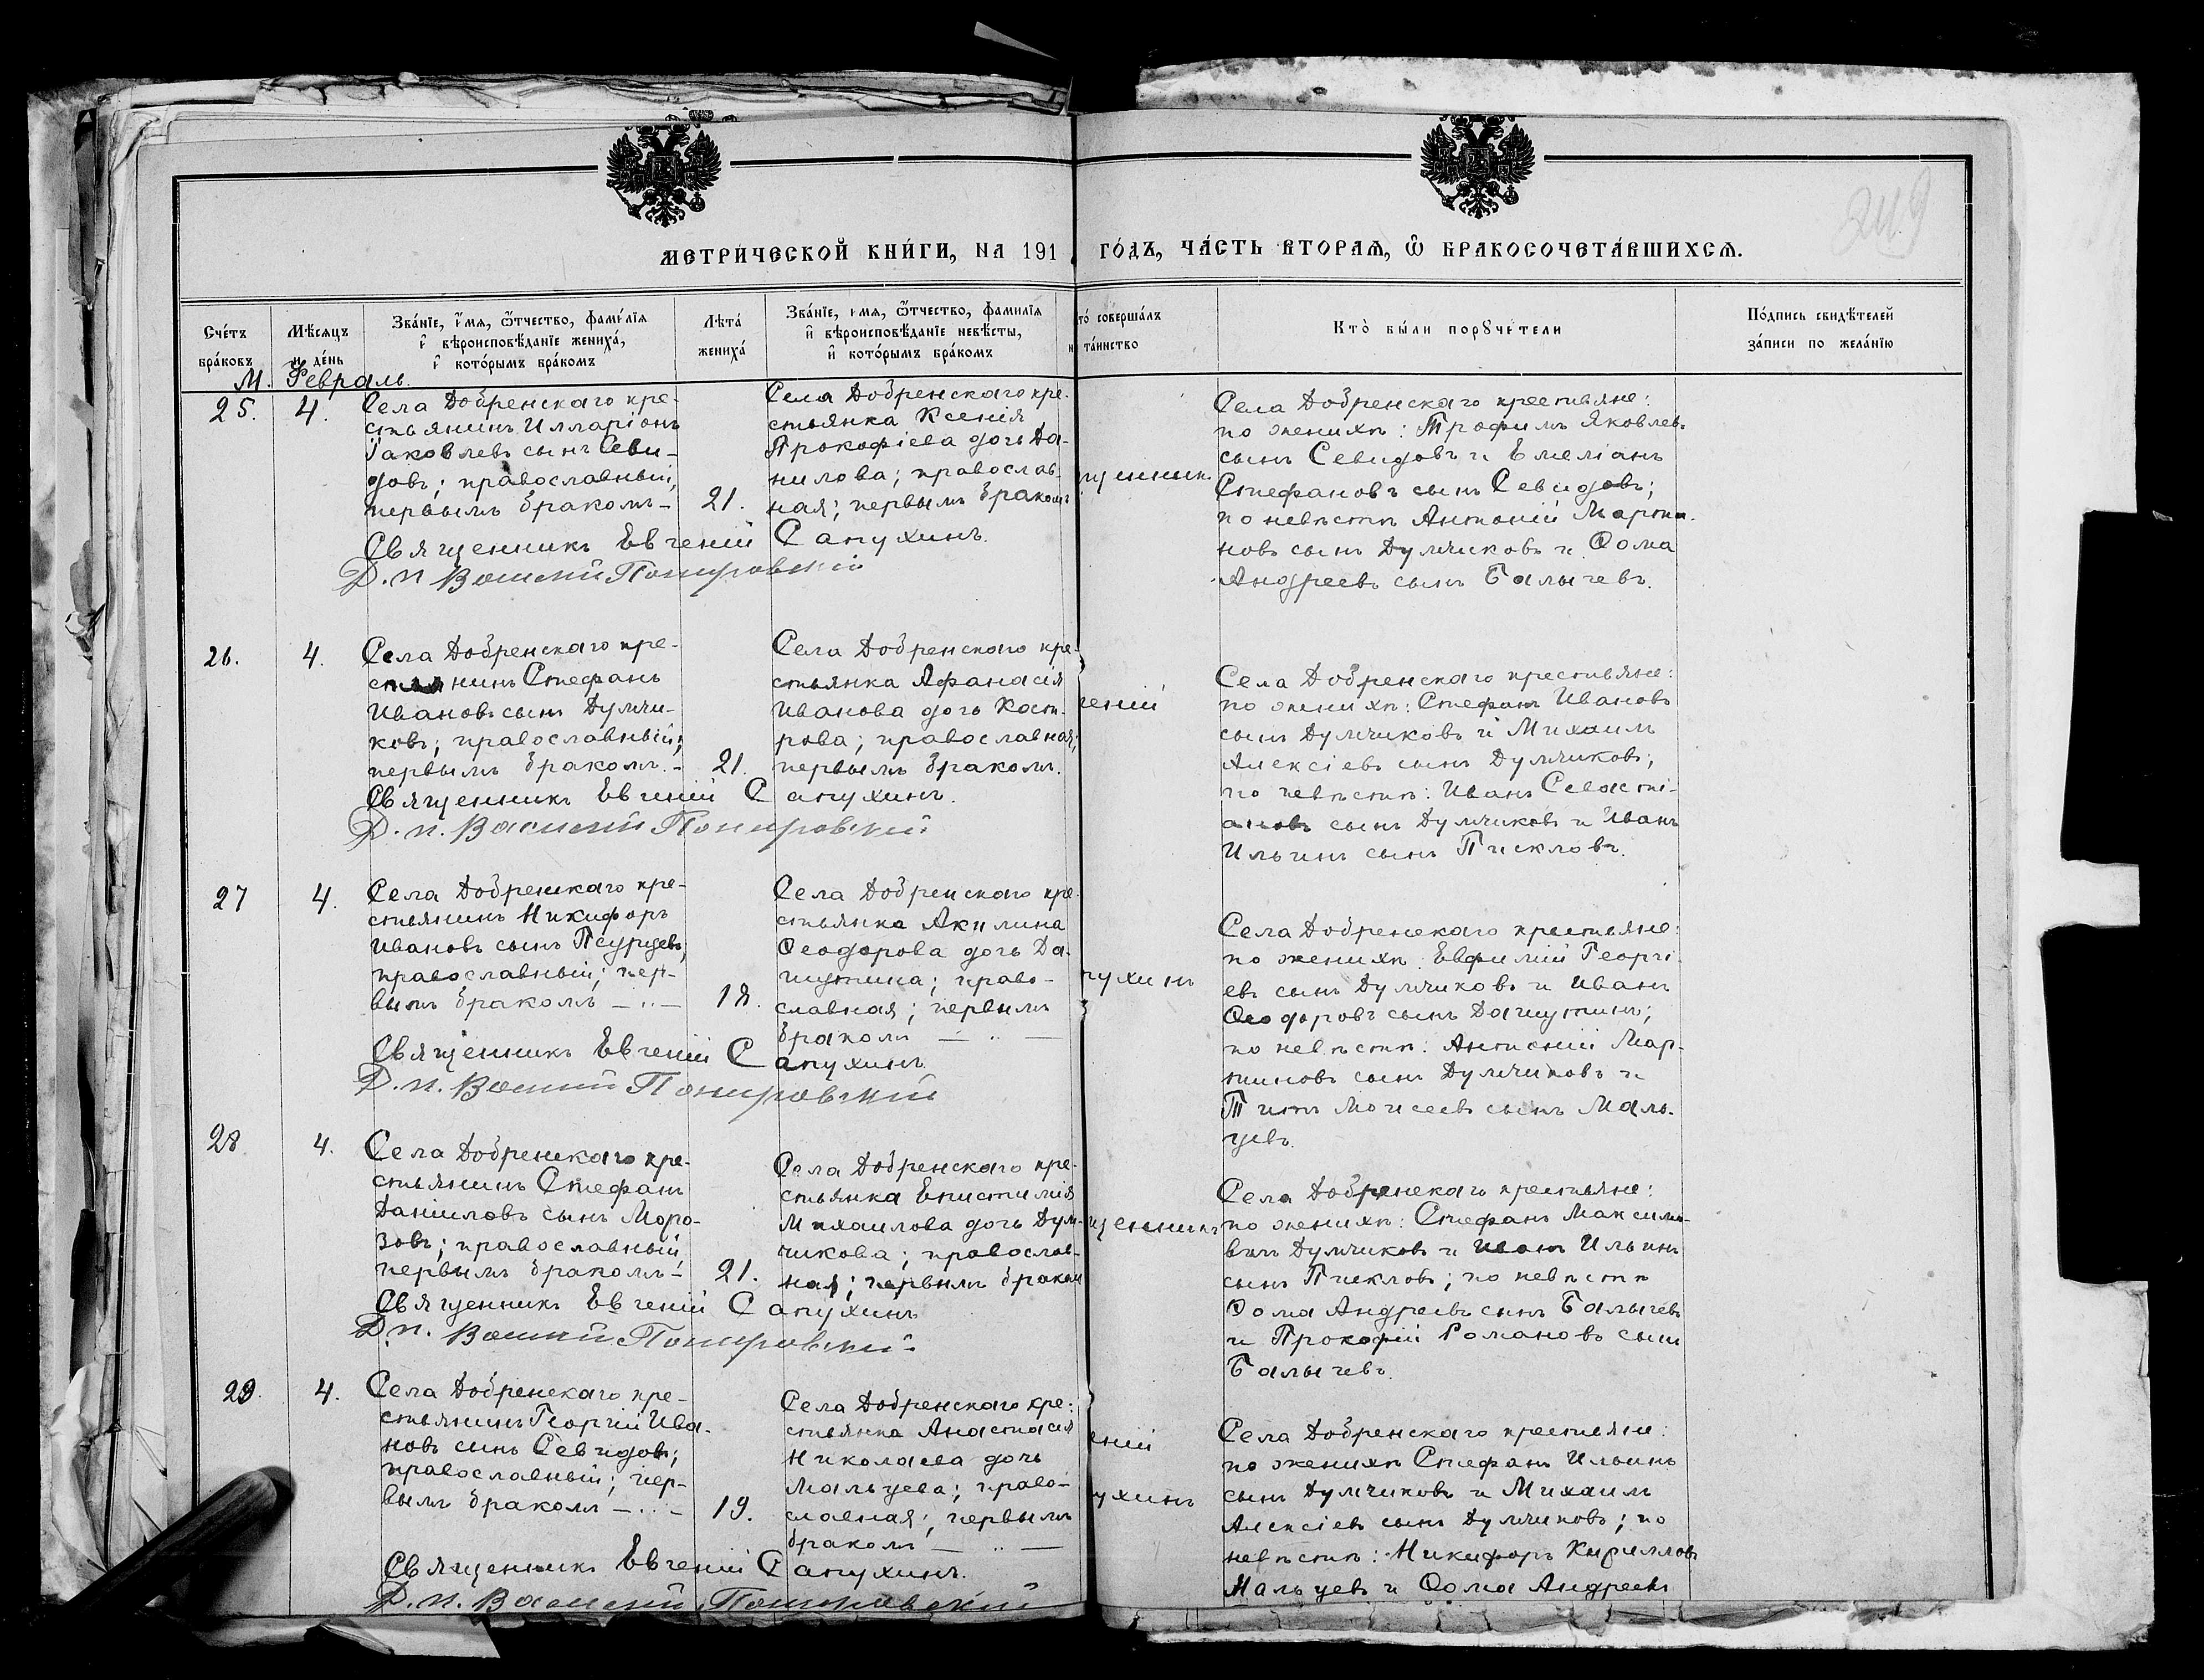 МЕТРИ́ЧЕСКОЙ КНИ́ГИ, НА 191 ГО́ДЪ, ЧА́СТЬ ВТОРАѦ, Ѽ БРАКОСОЧЕТА́ВШИХСѦ.
Сче́тъ бра́ковъ
Мѣ́сѧцъ и де́нь
Зва́нїе, и́мѧ, ѻ҆́тчество, фами́лїѧ и҆ вѣроисповѣ́данїе жениха́, и҆ кото́рымъ бра́комъ
Лѣта́ жениха́
Зва́нїе, и́мѧ, ѻ҆́тчество, фамилїѧ и҆ вѣроисповѣ́данїе невѣ́сты, и҆ кото́рымъ бра́комъ
то́ соверша́лъ
та́инство
Кто̀ бы́ли порꙋчи́тели
По́дпись свидѣ́телей за́писи по жела́нїю
М. Февраль.
25.
4.
Села Добренскаго кре-
стьянинъ Илларіонъ
Іаковлевъ сынъ Севи-
довъ; православный,
первымъ бракомъ –
21.
Села Добренскаго кре-
стьянка Ксенія
Прокофіева дочь Да-
нилова; православ-
ная; первымъ бракомъ
щенникъ
Села Добренскаго крестьяне:
по женихѣ: Трофимъ Яковлевъ
сынъ Севидовъ и Емеліанъ
Стефановъ сынъ Севидовъ;
по невѣстѣ Антоній Марти-
новъ сынъ Думчиковъ и Ѳома
Андреевъ сынъ Балычевъ.
Священникъ Евгеній Сапухинъ.
Д. п. Василій
26.
4.
Села Добренскаго кре-
стьянинъ Стефанъ
Ивановъ сынъ Думчи-
ковъ; православный;
первымъ бракомъ. –
21.
Села Добренскаго кре-
стьянка Афанасія
Иванова дочь Кост-
рова; православная;
первымъ бракомъ.
геній
Села Добренскаго крестьяне:
по женихѣ: Стефанъ Ивановъ
сынъ Думчиковъ и Михаилъ
Алексіевъ сынъ Думчиковъ;
по невѣстѣ: Иванъ Севасті-
ановъ сынъ Думчиковъ и Иванъ
Ильинъ сынъ Пискловъ.
Священникъ Евгеній Сапухинъ.
Д. п. Василій
27
4.
Села Добренскаго кре-
стьянинъ Никифоръ
Ивановъ сынъ Псурцевъ,
православный; пер-
вымъ бракомъ – .. –
18.
Села Добренскаго кре-
стьянка Акилина
Ѳеодорова дочь Да-
шутина; право-
славная; первымъ
бракомъ – .. –
пухинъ
Села Добренскаго крестьяне:
по женихѣ: Евфимій Георгі-
евъ сынъ Думчиковъ и Иванъ
Ѳеодоровъ сынъ Дашутинъ;
по невѣстѣ: Антоній Мар-
тиновъ сынъ Думчиковъ и
Титъ Моисеевъ сынъ Маль-
цевъ.
Священникъ Евгеній Сапухинъ.
Д. п. Василій
28
4.
Села Добренскаго кре-
стьянинъ Стефанъ
Даниловъ сынъ Моро-
зовъ; православный
первымъ бракомъ –
21.
Села Добренскаго кре-
стьянка Епистимія
Михаилова дочь Дум-
чикова; православ-
ная; первымъ бракомъ
щенникъ
Села Добренскаго крестьяне:
по женихѣ: Стефанъ Максимо-
вичъ Думчиковъ и Иванъ Ильинъ
сынъ Пискловъ; по невѣстѣ
Ѳома Андреевъ сынъ Балычевъ
и Прокофій Романовъ сынъ
Балычевъ.
Священникъ Евгеній Сапухинъ
Д. п. Василій
29.
4.
Села Добренскаго кре-
стьянинъ Георгій Ива-
новъ сынъ Севидовъ;
православный; пер-
вымъ бракомъ – .. –
19.
Села Добренскаго кре-
стьянка Анастасія
Николаева дочь
Мальцева; право-
славная; первымъ
бракомъ – .. –
еній
ухинъ
Села Добренскаго крестьяне:
по женихѣ Стефанъ Ильинъ
сынъ Думчиковъ и Михаилъ
Алексіевъ сынъ Думчиковъ; по
невѣстѣ: Никифоръ Кирилловъ
Мальцевъ и Ѳома Андреевъ
Священникъ Евгеній Сапухинъ.
Д. п. Василій